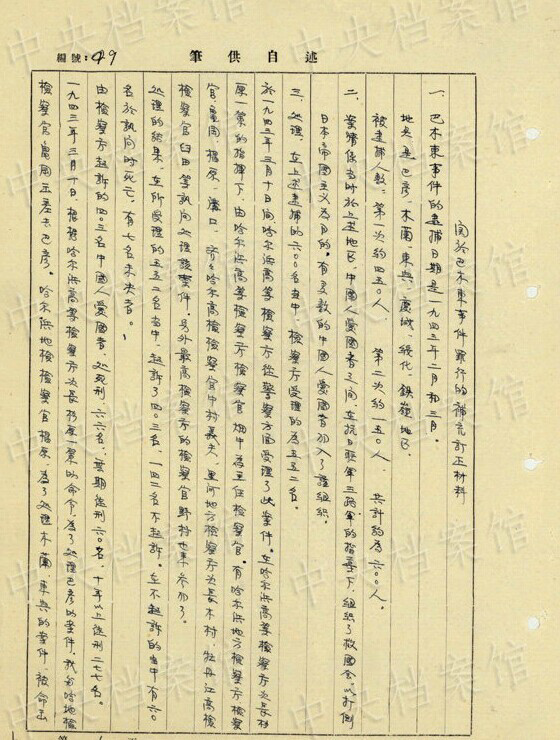 述自供筆
編號:049
關於巴木東事件罪行的補充訂正材料
一、巴木東事件的逮捕日期是一九四三年二月和三月。
地点是巴彥、木蘭、東興、慶城、綏化、鉄驪地区。
被逮捕人数：第一次約四五〇人 第二次約一五〇人、 共計約為六〇〇人。
二、案情係当時於上述地区中國人愛國者之间、在抗日联軍三路軍的指導下、組織了救國会、以打倒
日本帝国主义為目的。有多数的中國人愛國者加入了該組織。
三、处理、在上述逮捕的六〇〇名当中、檢察方受理的為五五二名。
於一九四三年三月十日间、哈尔浜高等檢察方從警察方面受理了此案件。在哈尔浜高等檢察方次長杉
原一策的指揮下、由哈尔浜高等檢察方檢察官畑中為主任檢察官。有哈尔浜地方檢察方檢察
官、亀岡、楊原、溝口、齐々哈尔高檢檢察官中村義夫、黑河地方檢察方次長木村、牡丹江高檢
檢察官臼田等執同处理該案件。另外最高檢察方的檢察官野村也来参加了。
处理的結果、在所受理的五五二名当中、起訴了四〇三名、一四二名不起訴。在不起訴的当中有六〇
名於訊问时死亡、有七名未决者。
由檢察方起訴的四〇三名中國人愛國者、处死刑、六六名、無期徒刑六〇名、十年以上徒刑二七七名。
一九四三年三月十日、根据哈尔浜高等檢察方次長杉原一策的命令、為了处理巴彥的案件、我与哈地檢
檢察官亀岡五差去巴彥。哈尔浜地檢檢察官楊原、為了处理木蘭、東興的案件、被命出
中央档案馆